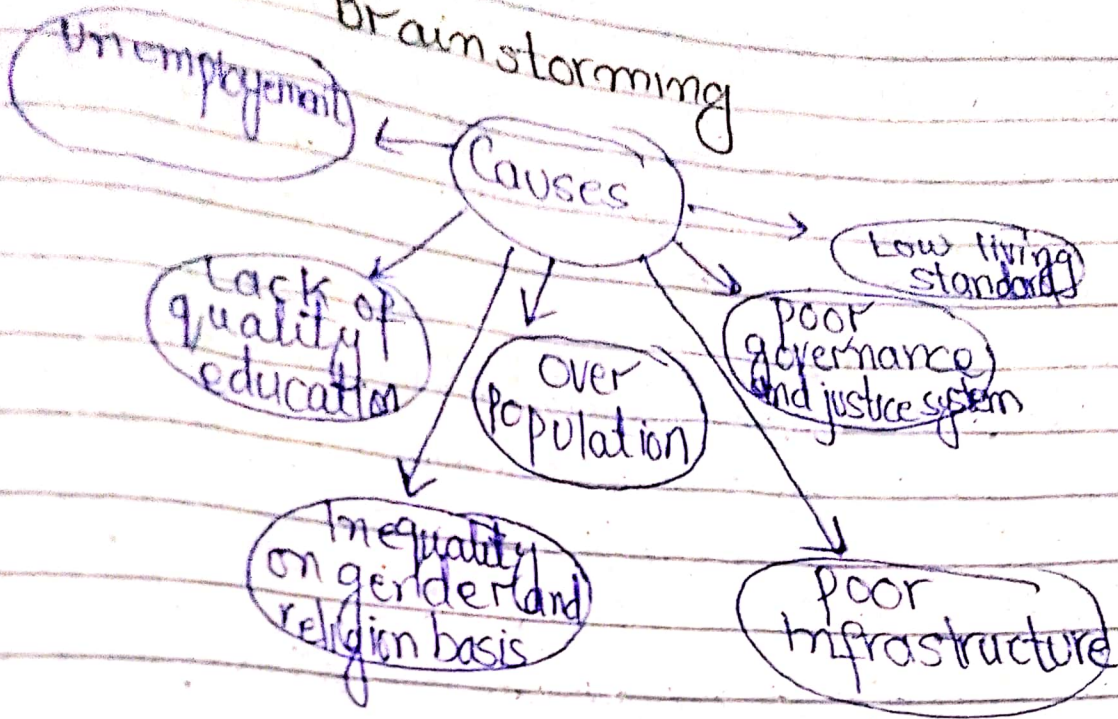 Brainstorming
Unemployemnt
Causes
Low living
standards
Lack of
quality of
education
over
population
poor
governance
and justice system
Inequality
on gender and
religion basis
poor
infrastructure